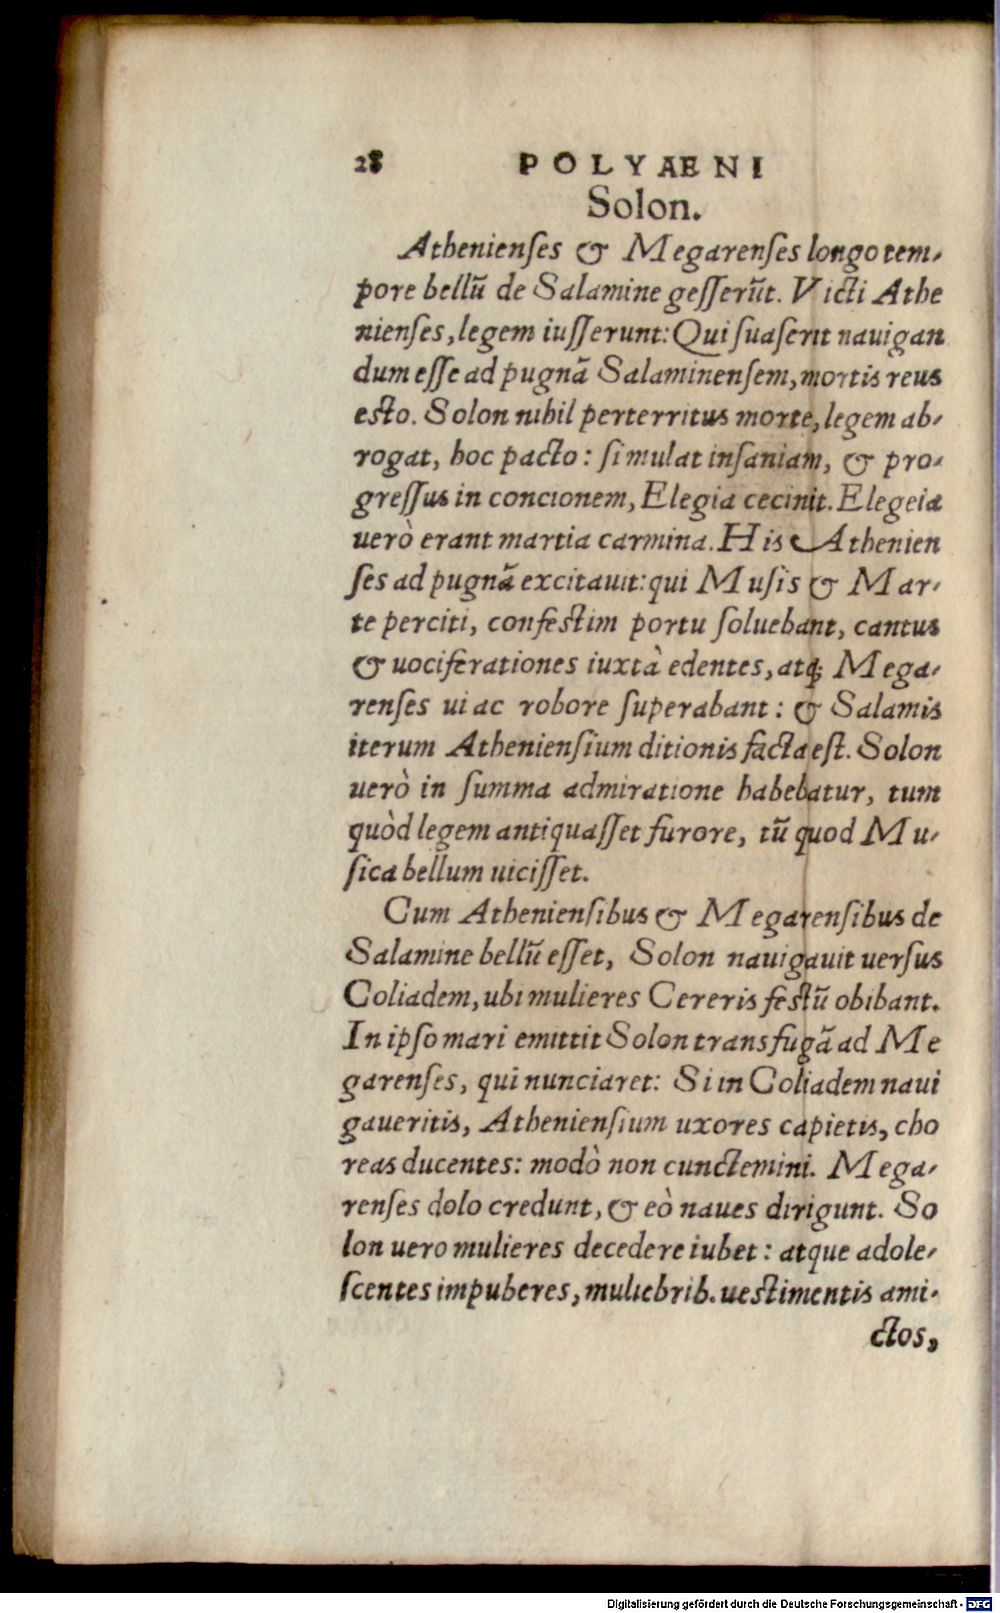 28 POLYAENI
Solon.
Athenienses & Megarenses longo tem-
pore bellũ de Salamine gesserũt. Victi Athe
nienses, legem iusserunt: Qui suaserit nauigan
dum esse ad pugnã Salaminensem, mortis reus
esto. Solon nihil perterritus morte, legem ab-
rogat, hoc pacto: simulat insaniam, & pro-
gressus in concionem, Elegia cecinit. Elegeia
uerò erant martia carmina. His Athenien
ses ad pugnã excitauit: qui Musis & Mar-
te perciti, confestim portu soluebant, cantus
& uociferationes iuxtà edentes, atq; Mega-
renses ui ac robore superabant: & Salamis
iterum Atheniensium ditionis facta est. Solon
uerò in summa admiratione habebatur, tum
quòd legem antiquasset furore, tũ quod Mu-
sica bellum uicisset.
Cum Atheniensibus & Megarensibus de
Salamine bellũ esset, Solon nauigauit uersus
Coliadem, ubi mulieres Cereris festũ obibant.
In ipso mari emittit Solon transfugã ad Me
garenses, qui nunciaret: Si in Coliadem naui
gaueritis, Atheniensium uxores capietis, cho
reas ducentes: modò non cunctemini. Mega-
renses dolo credunt, & eò naues dirigunt. So
lon uero mulieres decedere iubet: atque adole-
scentes impuberes, muliebrib. uestimentis ami-
ctos,
Digitalisierung gefördert durch die Deutsche Forschungsgemeinschaft - DFG